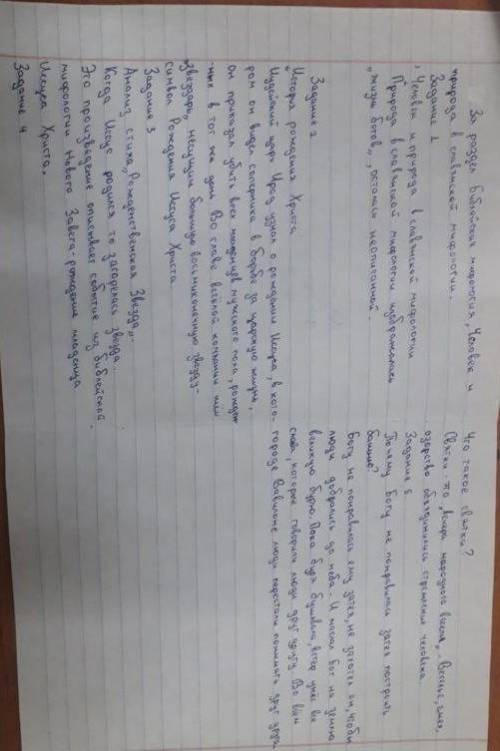 За раздел Библейская мифология, Человек и
природа в славянской мифологии.
Задание 1
"Человек и природа в славянской мифологии
Природа в славянской мифологии изображалась
"жизнь богов", осталась неописанной.
Задание 2
"История рождения Христа
Иудейский царь Ирод узнал о рождении Иисуса, в кото-
ром он видел соперника в борьбе за царскую жизнь,
он приказал убить всех младенцев мужского пола, рожден
ных в тот же день Во главе весёлой компании шел
"звездарь", несущий большую восьмиконечную звезду-
символ Рождения Иисуса Христа
Задание 3
Анализ стиха "Рождественская Звезда".
Когда Иисус родился то загорелась звезда.
Это произведение описывает событие из библейской
мифологии Нового Завета-рождение младенца
Иисуса Христа.
Задание 4
Что такое святки?
Святки это "вечера народного веселья". Веселье, смех,
озорство объединились стремлением человека.
Задание 5
Почему богу не понравилась затея построить
башню?
Богу не понравилась ему затея, не захотел он, чтобы
люди добрались до неба. И наслал бог на землю
великую бурю. Пока буря бушевала, ветер унёс все
слова, которые говорили люди друг другу Во всём
городе Вавилоне люди перестали понимать друг друга